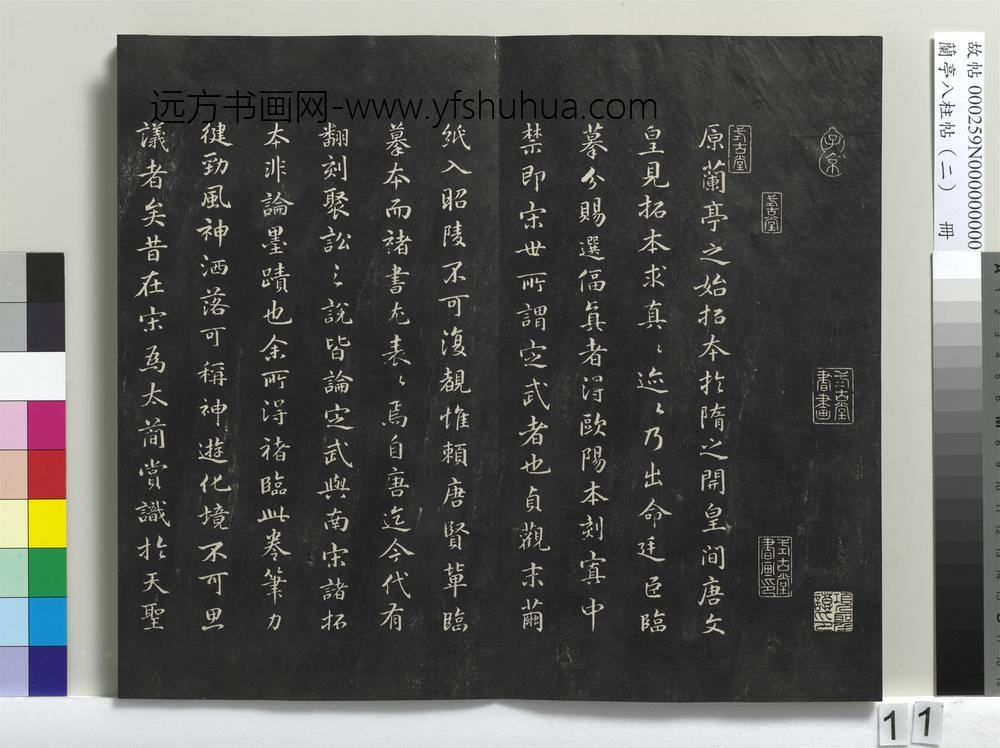 远方书画网-www.yfshuhua.com
原蘭亭之始拓本於隋之開皇間唐文
皇見拓本求真〻迹〻乃出命廷臣臨
摹分賜選偪真者得歐陽本刻寘中
禁即宋世所謂定武者也貞觀末繭
紙入昭陵不可復覩惟賴唐賢輩臨
摹本而褚書尤表〻焉自唐迄今代有
翻刻聚訟〻說皆論定武與南宋諸拓
本非論墨蹟也余所得褚臨此卷筆力
健勁風神洒落可稱神遊化境不可思
議者矣昔在宋爲太簡賞識於天聖
故帖000259N000000000
蘭亭八柱帖（二）　冊
11